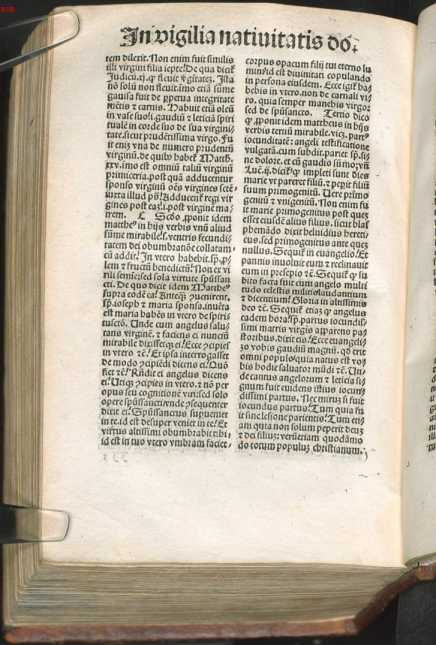 In vigilia nativitatis do.
tem dilexit. Non enim fuit similis
illi virgini filia iepte. De qua dicit
Judicū.xi. flevit vginitatē. Ista
nō solū non flevit imo etiā sume
gavisa fuit de ppetua integritate
mētis et carnis. Habuit etiā oleū
in vase suo. i. gaudiū et leticiā spiri
tualē in corde suo de sua virgini
tate, sicut prudētissima virgo. Fu
it eniz vna de numero prudentū
virginū. de quibꝰ habetꝫ Matth.
xxv. imo est omniū taliū virginū
primiceria. post quā adducentur
sponso virginū oēs virgines
iuxta illud ps. Adducent regi vir
gines post eā. i. post virginē ma
trem. Scdo ponit idem
mattheꝰ in hijs verbis vnū aliud
sume mirabile. s. ventris fecundi
tatem dei obumbratiōe collatam.
cū addit. In vtero habebit. sp.
lem et fructū benedictū. Non ex vi
rili semine sed sola virtute spūssan
cti. De quo dicit idem Mattheꝰ
supra eodē ca. Anteq̄ ꝯvenirent.
sp. ioseph et maria sponsa. inuēta
est maria habēs in vtero de spiri
tuscō. Unde cum angelus salu
tans virginē. et faciens ei nuncū
mirabile dixisset ei. Ecce ꝯcipies
in vtero ⁊c. Et ipsa interrogasset
de modo ꝯcipiēdi dicens ei. Quō
fiet ⁊c. Rñdit ei angelus dicens
ei. Utiqꝫ ꝯcipies in vtero. et nō per
opus seu cognitionē virised solo
opere spūssancti. vnde ꝯsequenter
dixit ei. Spūssanctus superuenier
in te. id est desuper veniet in te. Et
virtus altissimi obumbrabit tibi.
id est in tuo vtero vmbram faciet.
corpus opacum filij tui eterno lu
mini. id est diuinitati copulando
in persona eiusdem. Ecce igit ha
bebis in vtero. non de carnali vi
ro, quia semper manebis virgo.
sed de spūsancto. Terno dico
ponit idem mattheus in hijs
verbis terciū mirabile. vicꝫ. partꝰ
iocunditatē: angeli testificatione
vulgatā. cum subdit. pariet sp. si
ne dolore. et cū gaudio sūmo. vñ
Luc.ij. dicit impleti sunt dies
marie vt pareret filiū. et peperit filiū
suum primogenitū. Vere primo
genitū et vnigenitū. Non enim fu
it marie primogenitus post quez
esset eiusdē alius filius, sicut blas
phemādo dixit heluidius hereti
cus. sed primogenitus ante quez
nullus. Sequit in euangelio. Et
pannis inuoluit eum et reclinauit
eum in presepio ⁊c. Sequit su
bito facta fuit cum angelo multi
tudo celestis militie laudantium
et dicentium. Gloria in altissimis
deo ⁊c. Sequit etiaz angelus
eadem hora sp. partus iocundis
simi matris virgis apparens pa
storibus. dixit eis. Ecce euangeli
zo vobis gaudiū magnū. qd erit
omni populo. quia natus est vo
bis hodie saluator mūdi ⁊c. Un
de cantus angelorum et leticia si
gnum fuit euidens istius iocun
dissimi partus. Nec mirum si fuit
iocundus partus. Tum quia fu
it sine lesione parientis. Tum eti
am quia non solum peperit deuz
et dei filiuz: veruetiam quodāmo
do totum populuz christianum.